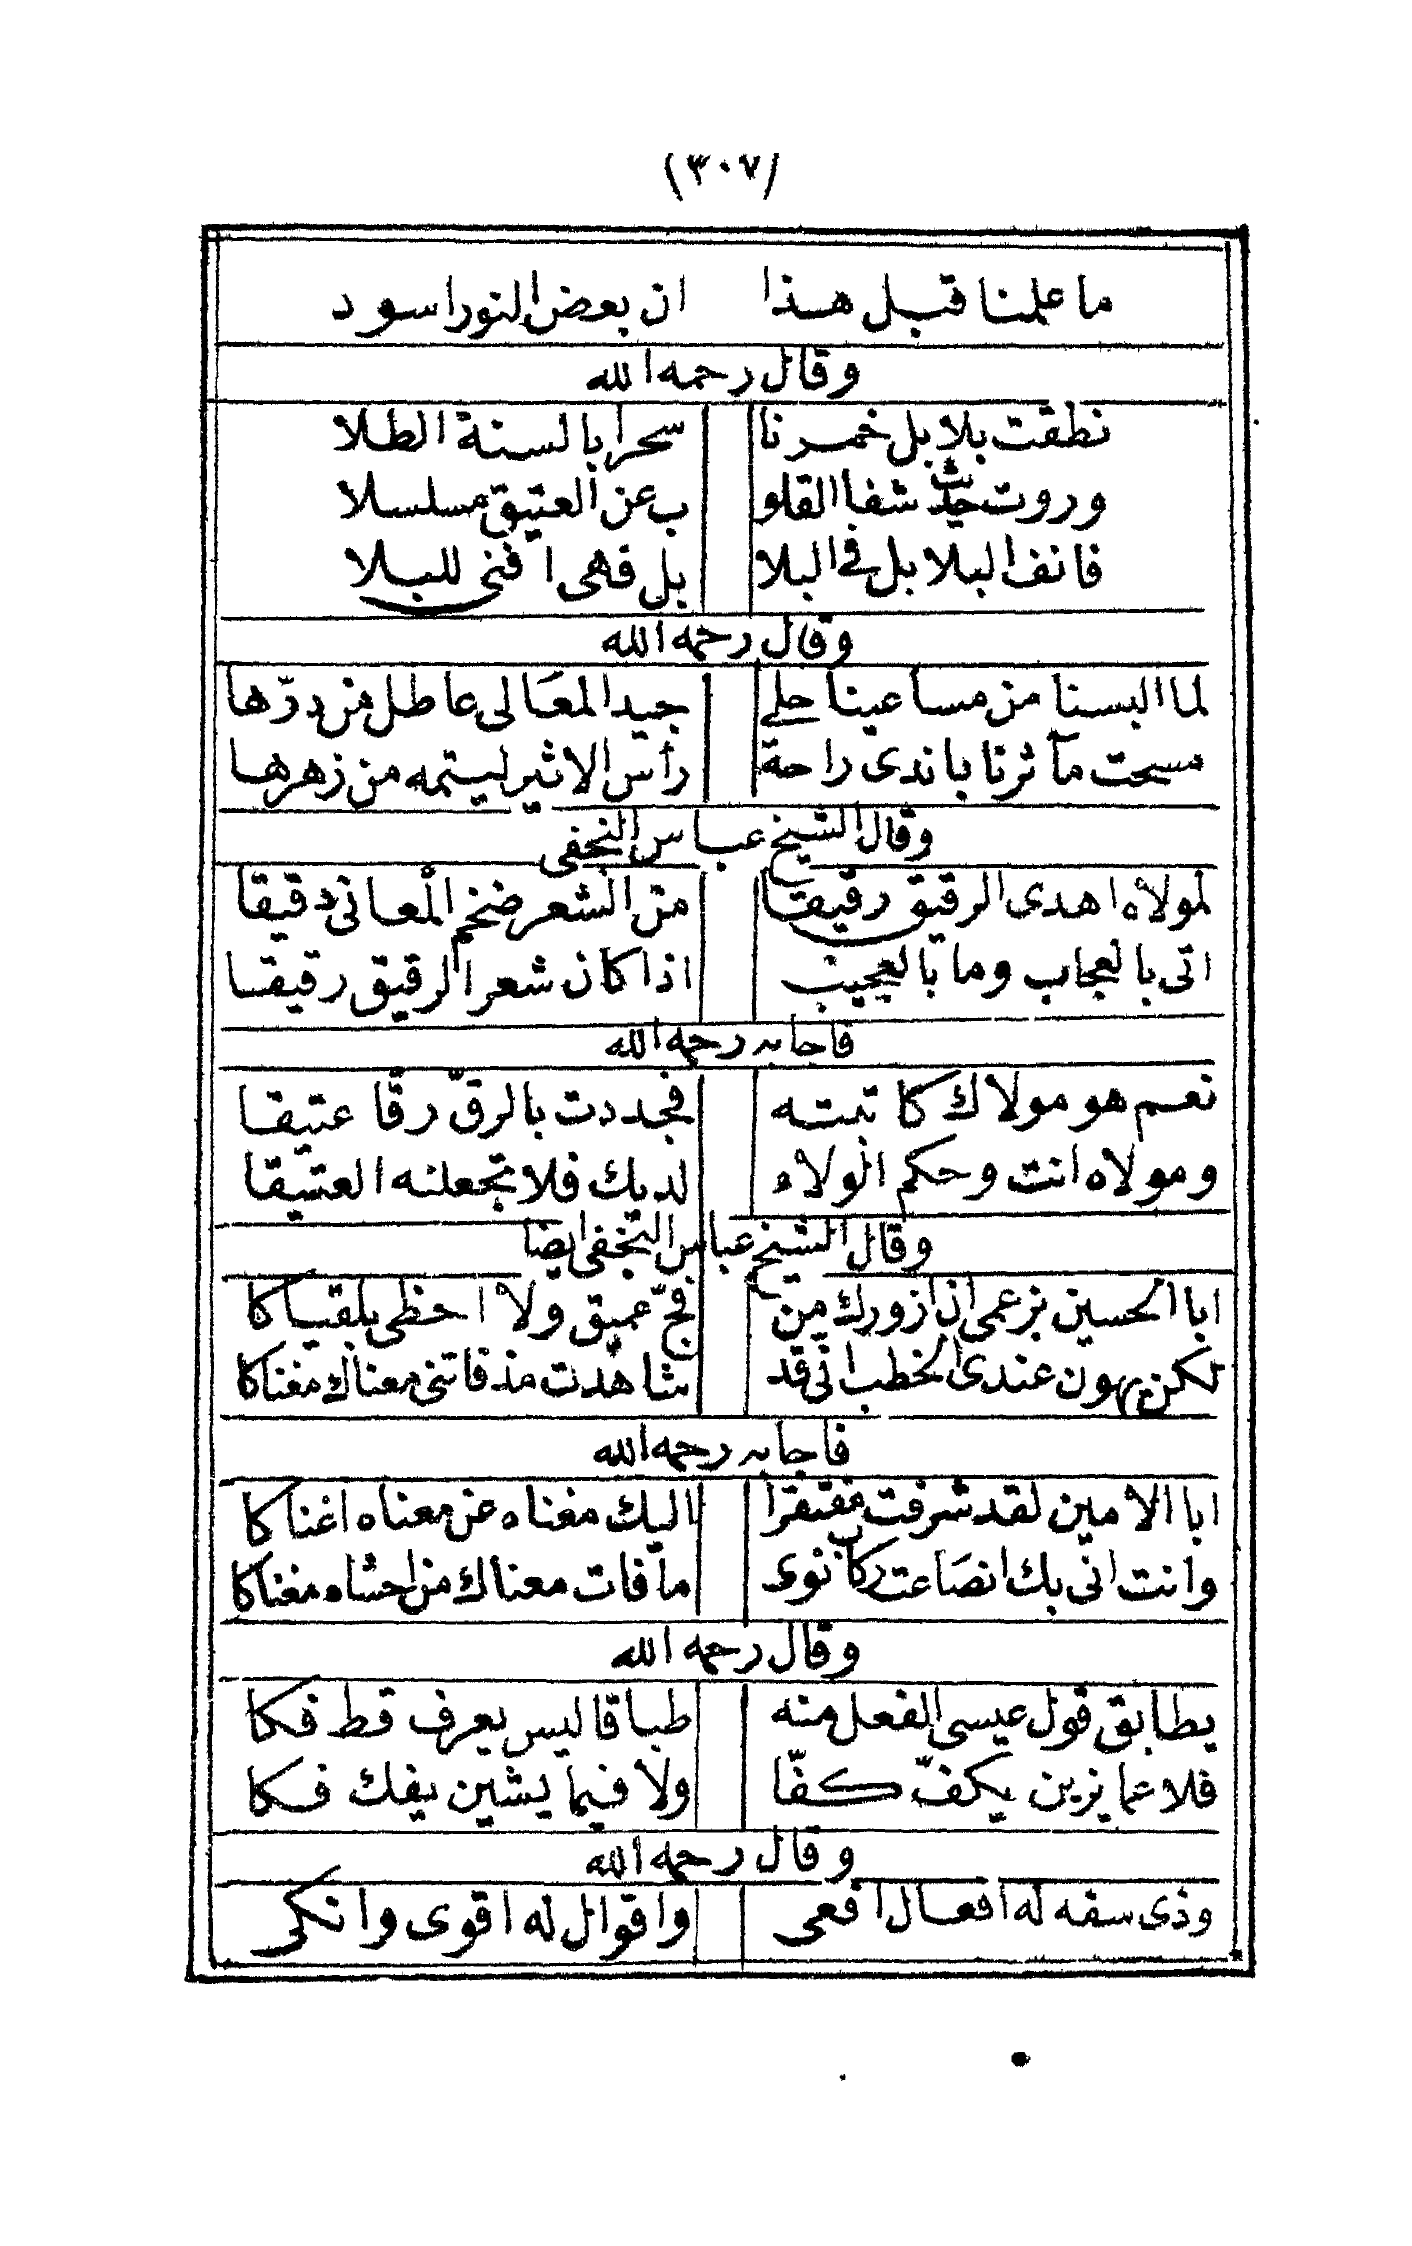 (٣٠٧)
ما علمنا قبل هذا ان بعض النور اسود
وقال رحمه الله
نطقت بلابل خمرنا سحرا بالسنة الطلا
وروت حديث شفا القلو ب عن العتيق مسلسلا
فانف البلابل في البلا بل فهى افنى للبلا
وقال رحمه الله
لما البسنا من مساعينا حلى جيد المعالى عاطل من درّها
مسحت مآثرنا باندى راحة رأس الاثير ليتمه من زهرها
وقال الشيخ عباس النجفى
لمولاه اهدى الرقيق رقيقا من الشعر ضخم المعانى دقيقا
اتى بالعجاب وما بالعجيب اذا كان شعر الرقيق رقيقا
فاجابه رحمه الله
نعم هو مولاك كاتبته فجددت بالرقّ رقّا عتيقا
ومولاه انت وحكم الولاه لديك فلا تجعلنه العتيقا
وقال الشيخ عباس النجفى ايضا
ابا الحسين بزعمى ان ازورك من فجّ عميق ولا احظى بلقياكا
لكن يهون عندى الخطب انى قد شاهدت مذ فاتنى معناك مغناكا
فاجابه رحمه الله
ابا الامين لقد شرفت مفتقرا اليك مغناه عن معناه اغناكا
وانت انّى بك انصاعت ركاب نوى ما فات معناك من احشاه مغناكا
وقال رحمه الله
يطابق قول عيسى الفعل منه طباقا ليس يعرف قط فكا
فلا عما يزين يكفّ كفّا ولا فيما يشين يفك فكا
وقال رحمه الله
وذى سفه له افعال افعى واقوال له اقوى وانكى